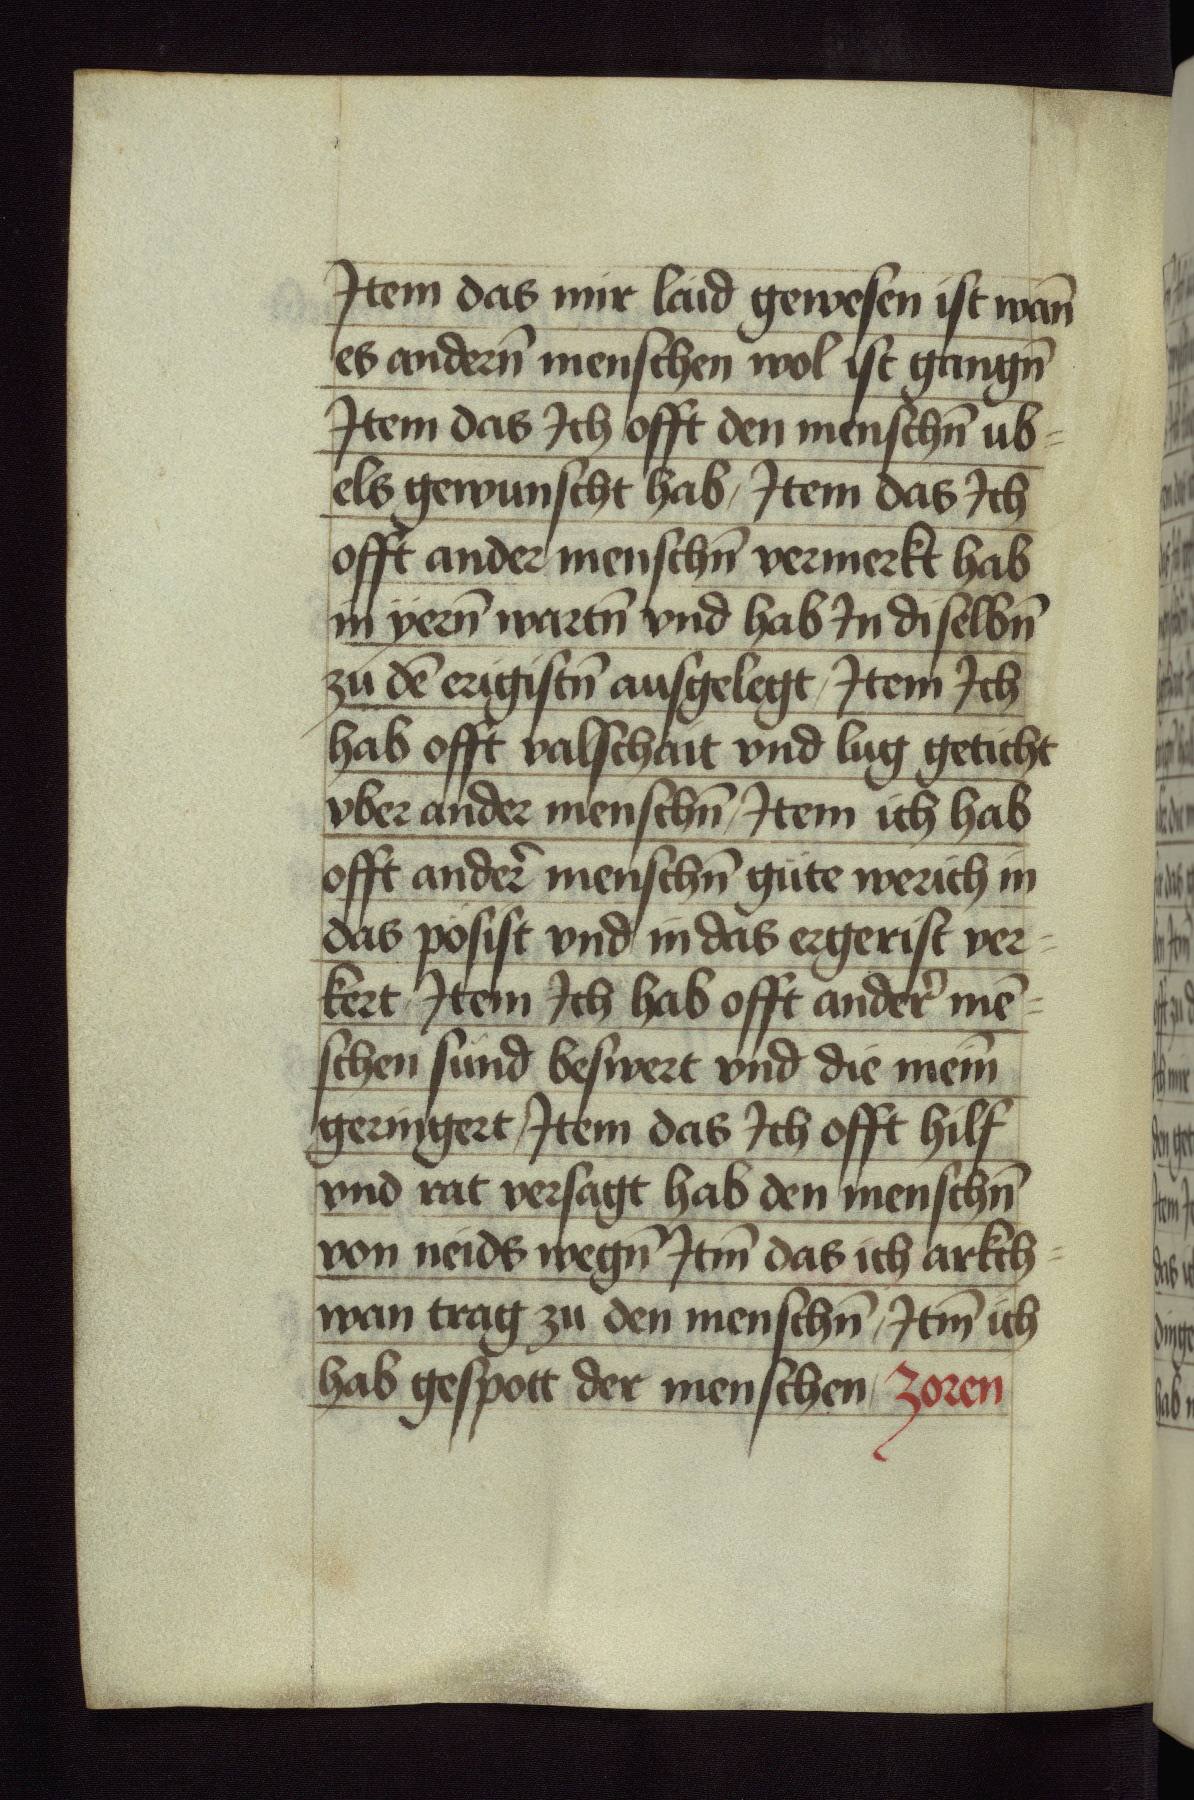 Item das mir laid gewesen ist wan̄
es andern̄ menschen wol ist gangn̄
Item das Ich offt den menschn̄ ub=
els gewunscht hab / Item das Ich
offt ander menschn̄ vermerkt hab
in ÿern̄ wartn̄ vnd hab In diselbn̄
zu dē erigistn̄ ausgelegt / Item Ich
hab offt valschait vnd lug geticht
vber ander menschn̄ / Item ich hab
offt anderˀ menschn̄ güte werich in
das pösist vnd in das ergerist ver=
kert / Item Ich hab offt anderˀ mē=
schen sünd beswert vnd die mein̄
geringert / Item das Ich offt hilf
vnd rat versagt hab den menschn̄
von neids wegn̄ Itm̄ das ich arkch=
wan trag zu den menschn̄ / Itm̄ ich
hab gespott der menschen / Zoren